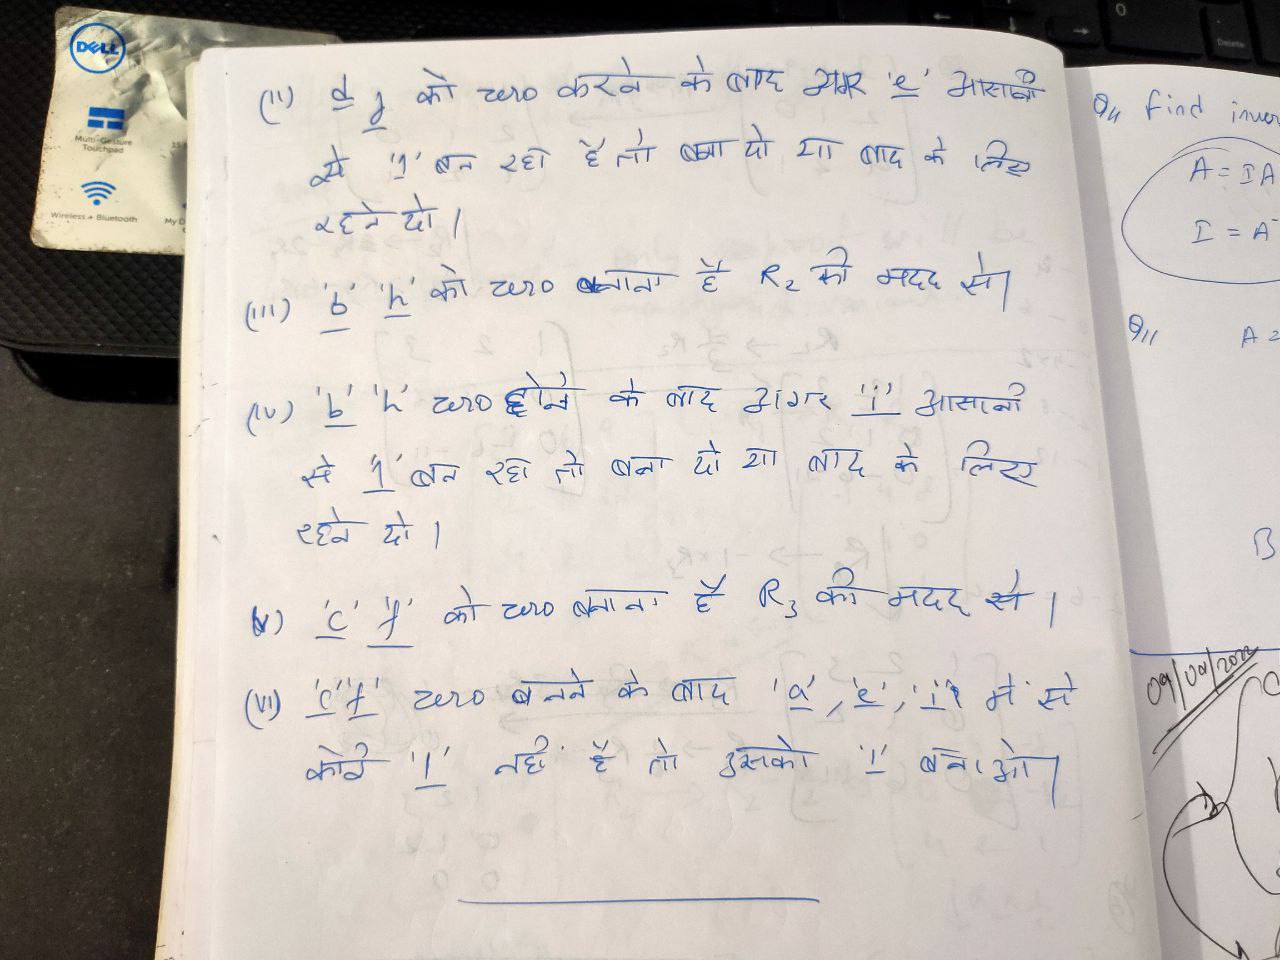 DELL
Multi-Gesture
Touchpad
Wireless + Bluetooth
My D
Delete
(ii) d g को zero करने के बाद अगर 'e' आसानी
से '1' बन रहा है तो बना दो या बाद के लिए
रहने दो।
(iii) 'b' 'h' को zero बनाना है R2 की मदद से।
(iv) 'b' 'h' zero होने के बाद अगर 'i' आसानी
से '1' बन रहा तो बना दो या बाद के लिए
रहने दो।
(v) 'c' 'f' को zero बनाना है R3 की मदद से।
(vi) 'c' 'f' zero बनने के बाद 'a', 'e', 'i' में से
कोई '1' नहीं है तो उसको '1' बनाओ।
Q11 find inver
A = IA
I = A⁻
Q11 A =
B
09/09/2022